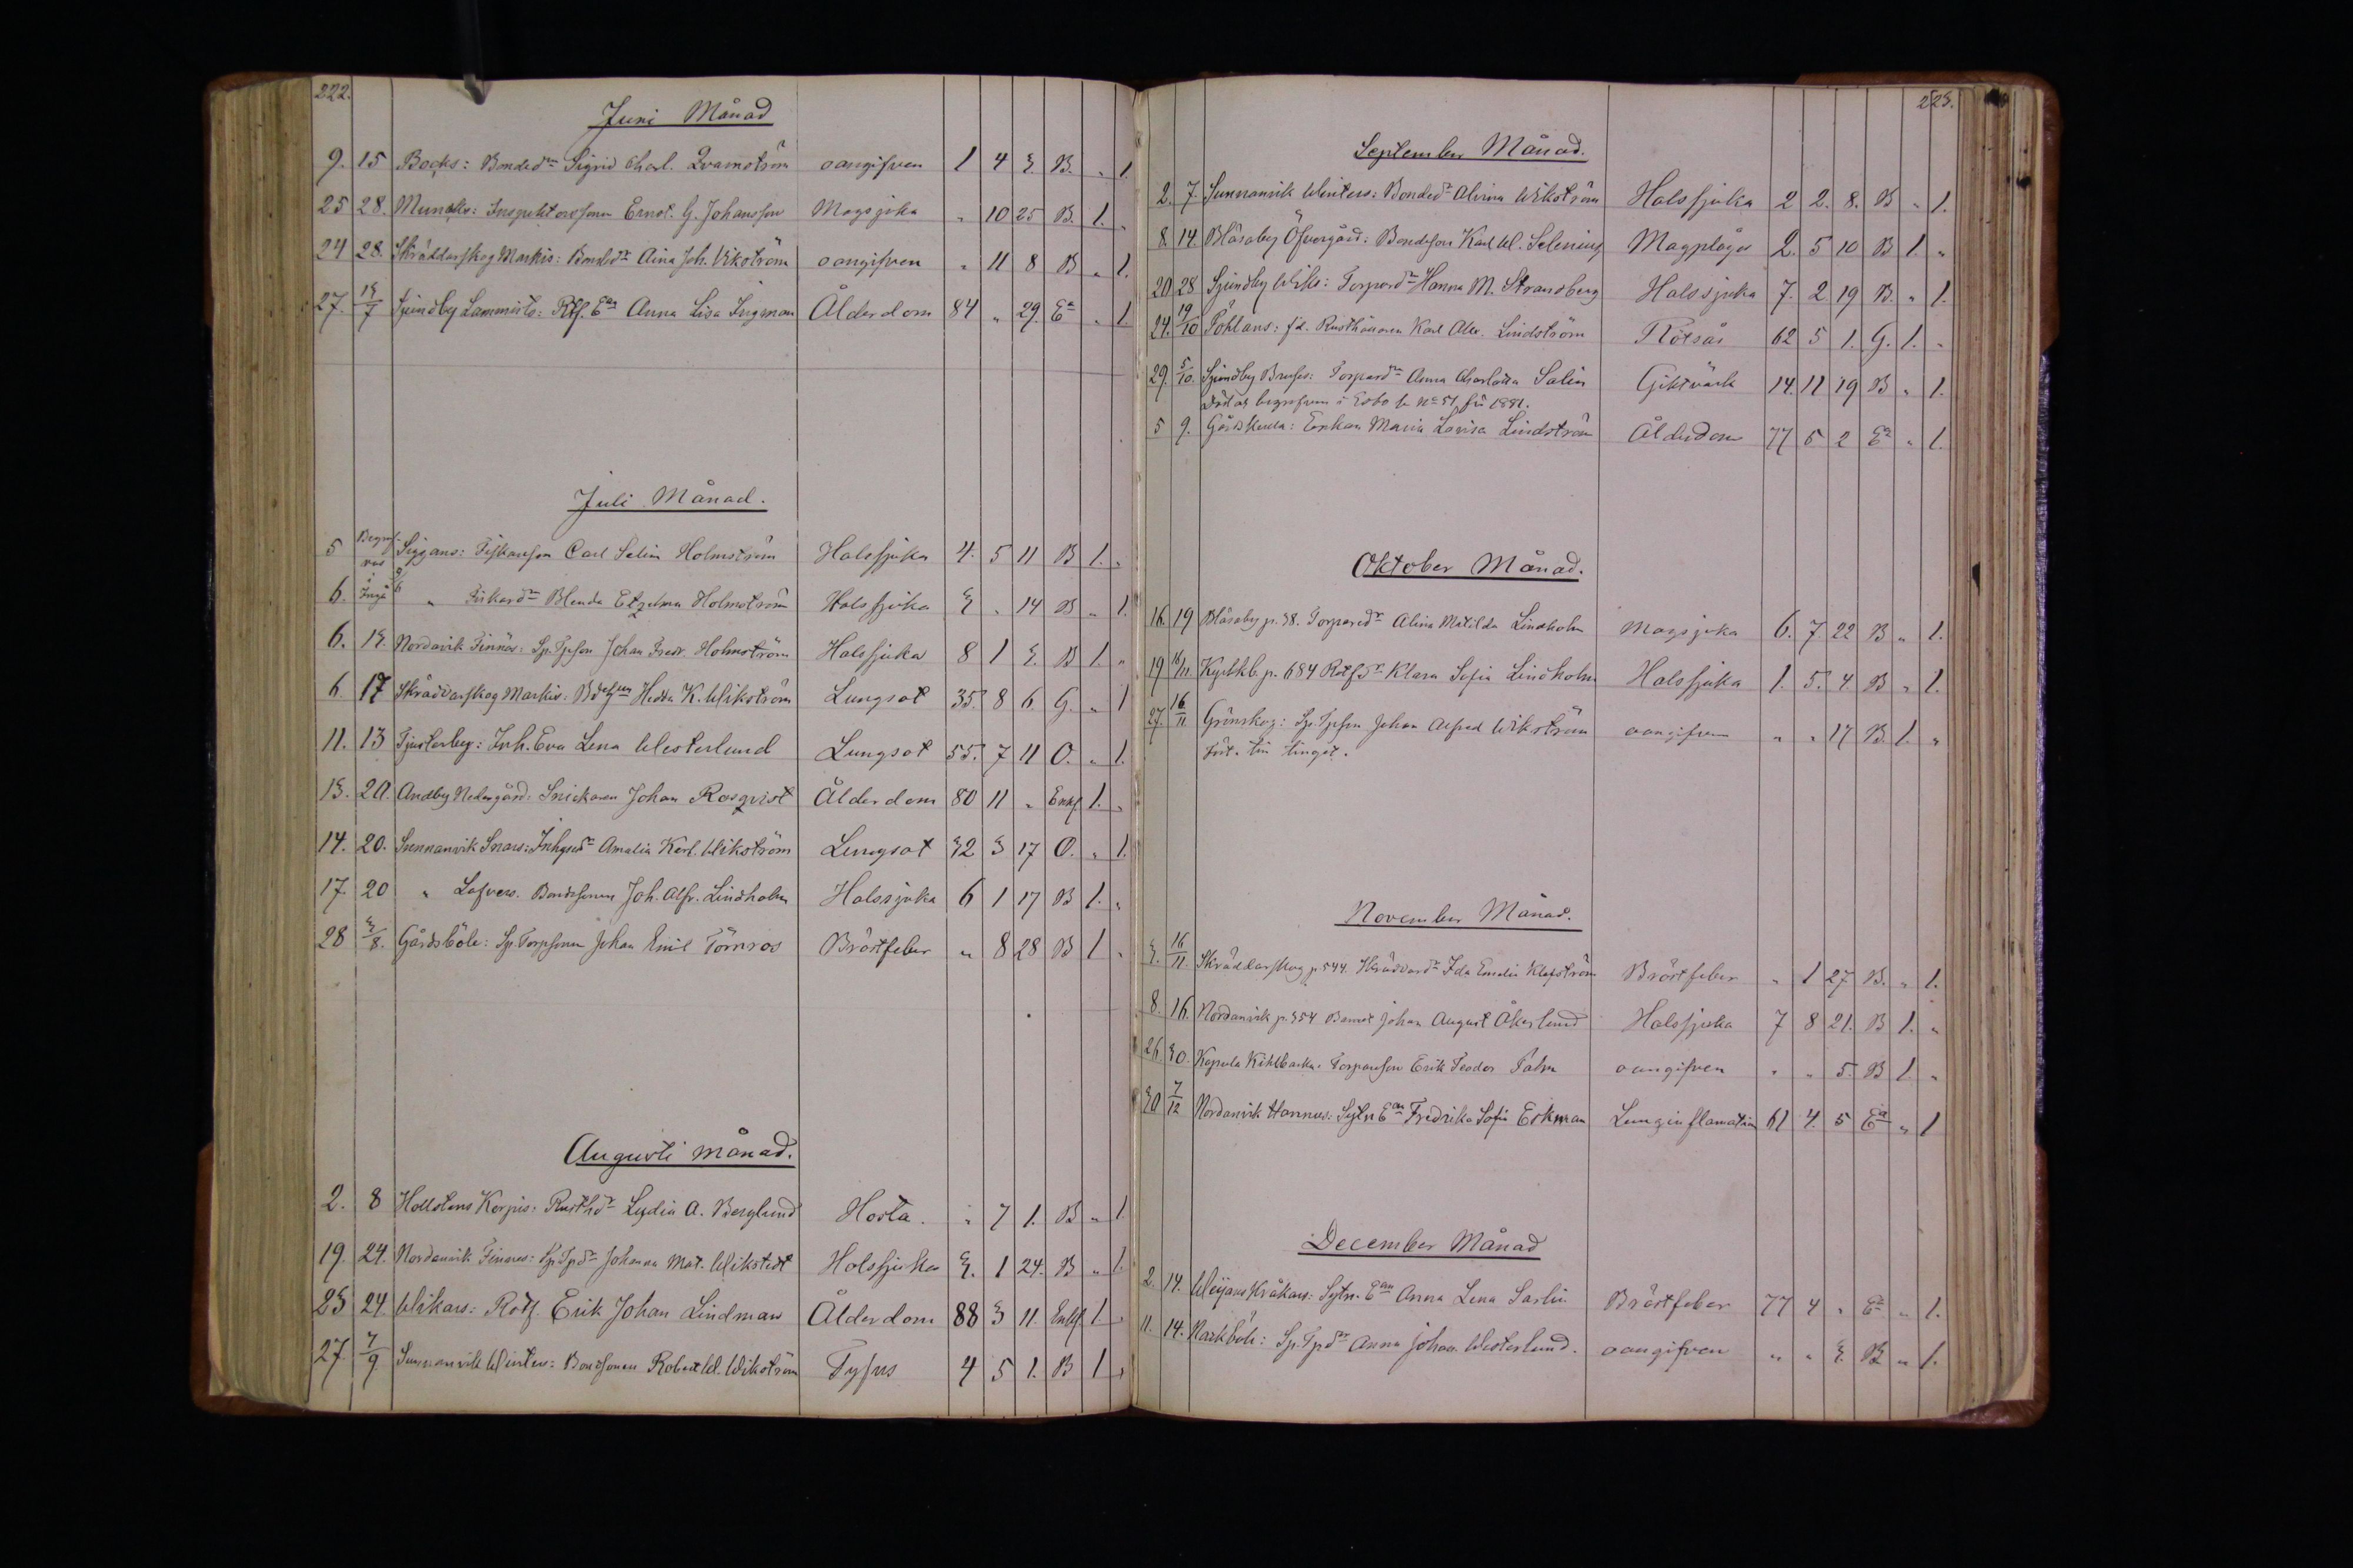 222.
Juni Månad
9. 15 Backs: Bonded:r Sigrid Charl. Qvarnström oangifven 1 4 3. B. „ 1
25 28. Munks: Inspektorssonen Ernst. G. Johansson Magsjuka „ 10 25 B. 1. „
24 28. Skräddarskog Markis: Bonded:r Aina Joh. Wikström oangifven „ 11 8 B „ 1.
27. 13/7 Sjundby Lammits: Rtf. E:an Anna Lisa Ingman Ålderdom 84 „ 29. E:a „ 1
Juli Månad.
5 Begrof- Siggans: Fiskaresson Carl Selim Holmström Halssjuka 4. 5 11 B 1. „
vos
i 9/6
6. Ingå „ Fiskared:r Blenda Etzelma Holmström Halssjuka 3 „ 14 B „ 1.
6. 13. Nordavik Finnäs: Sp. Tpson Johan Fredr. Holmström Halssjuka 8 1 3. B 1. „
6. 17 Skräddarskog Markis: Hedda K. Wikström Lungsot 35. 8 6. G. „ 1
11. 13 Tjusterby: Inh. Eva Lena Westerlund Lungsot 55. 7 11 O. „ 1.
13. 20. Andby Nedergård: Snickaren Johan Rosqvist Ålderdom 80 11 „ Enkl. 1. „
14. 20. Sunnanvik Snars: Inhyses d:r Amalia Karl. Wikström Lungsot 32 3 17 O. „ 1.
17. 20 „ Lafvers. Bondesonen Joh. Alfr. Lindholm Halssjuka 6 1 17 B 1. „
28 3/8. Gårdsböle: Sp. Torpsonen Johan Emil Törnros Bröstfeber „ 8 28 B 1 „
Augusti månad.
2. 8 Hollstens Korpis: Rusthd:r Lydia A. Berglund Hosta. „ 7 1. B „ 1
19. 24. Nordanvik Finnes: Sp. Tpd:r Johanna Mat. Wikstedt Halssjuka 3. 1 24. B „ 1.
23 24. Wikars: Rotf. Erik Johan Lindman Ålderdom 88 3 11. Enkl. 1. „
27. 7/9 Sunnanvik Winters: Bondsonen Robert W. Wikström Tyfus 4 5 1. B 1 „
223.
September Månad.
2. 7. Sunnanvik Winters: Bonded:r Alvina Wikström Halssjuka 2 2. 8. B „ 1.
8. 14. Blåsaby Öfvergård: Bondeson Karl W. Selenius Magplåga 2. 5 10 B 1. „
20 28 Sjundby Wiks: Torpared:r Hanna M. Strandberg Halssjuka 7. 2. 19 B. „ 1.
24. 19/10 Pöhlans: f.d. Rusthållaren Karl Alex. Lindström Rötsår 62 5 1. G. 1. „
29. 5/10. Sjundby Brusas: Torpared:r Anna Charlotta Salin Giktvärk 14. 11 19 B „ 1.
Död och begrafven i Esbo se N:o 51 för 1881.
5 9. Gårdskulla: Enkan Maria Lovisa Lindström Ålderdom 77 5 2 E:a „ 1.
Oktober Månad.
16. 19 Blåsaby p. 38. Torpared:r Alina Matilda Lindholm Magsjuka 6. 7 22 B „ 1.
19 16/11. Kyrkkb. p. 684 Rotfd:r Klara Sofia Lindholm Halssjuka 1. 5. 4. B „ 1.
27. 16/11 Grönskog: Sp. Tpson Johan Alfred Wikström oangifven „ „ 17 B. 1. „
först. till tinget.
November Månad.
3. 16/11. Skräddarskog p. 544. Ida Emelie Klefström Bröstfeber „ 1 27 B. „ 1.
8. 16. Nordanvik p. 354 Barnet Johan August Åkerlund Halssjuka 7 8 21. B 1. „
26. 30. Kopula Kihlbacka: Torparson Erik Teodor Palm oangifven „ „ 5. B 1. „
30 7/12 Nordanvik Hannus: Sytn. E:an Fredrika Sofia Eckman Lunginflamation 61 4. 5 E:a „ 1
December Månad
2. 14. Weijans Kråkars: Sytn. E:an Anna Lena Sarlin Bröstfeber 77 4 „ E:a „ 1.
11. 14. Näckböle: Sp. Tpd:r Anna Johan. Westerlund. oangifven „ „ 3. B „ 1.